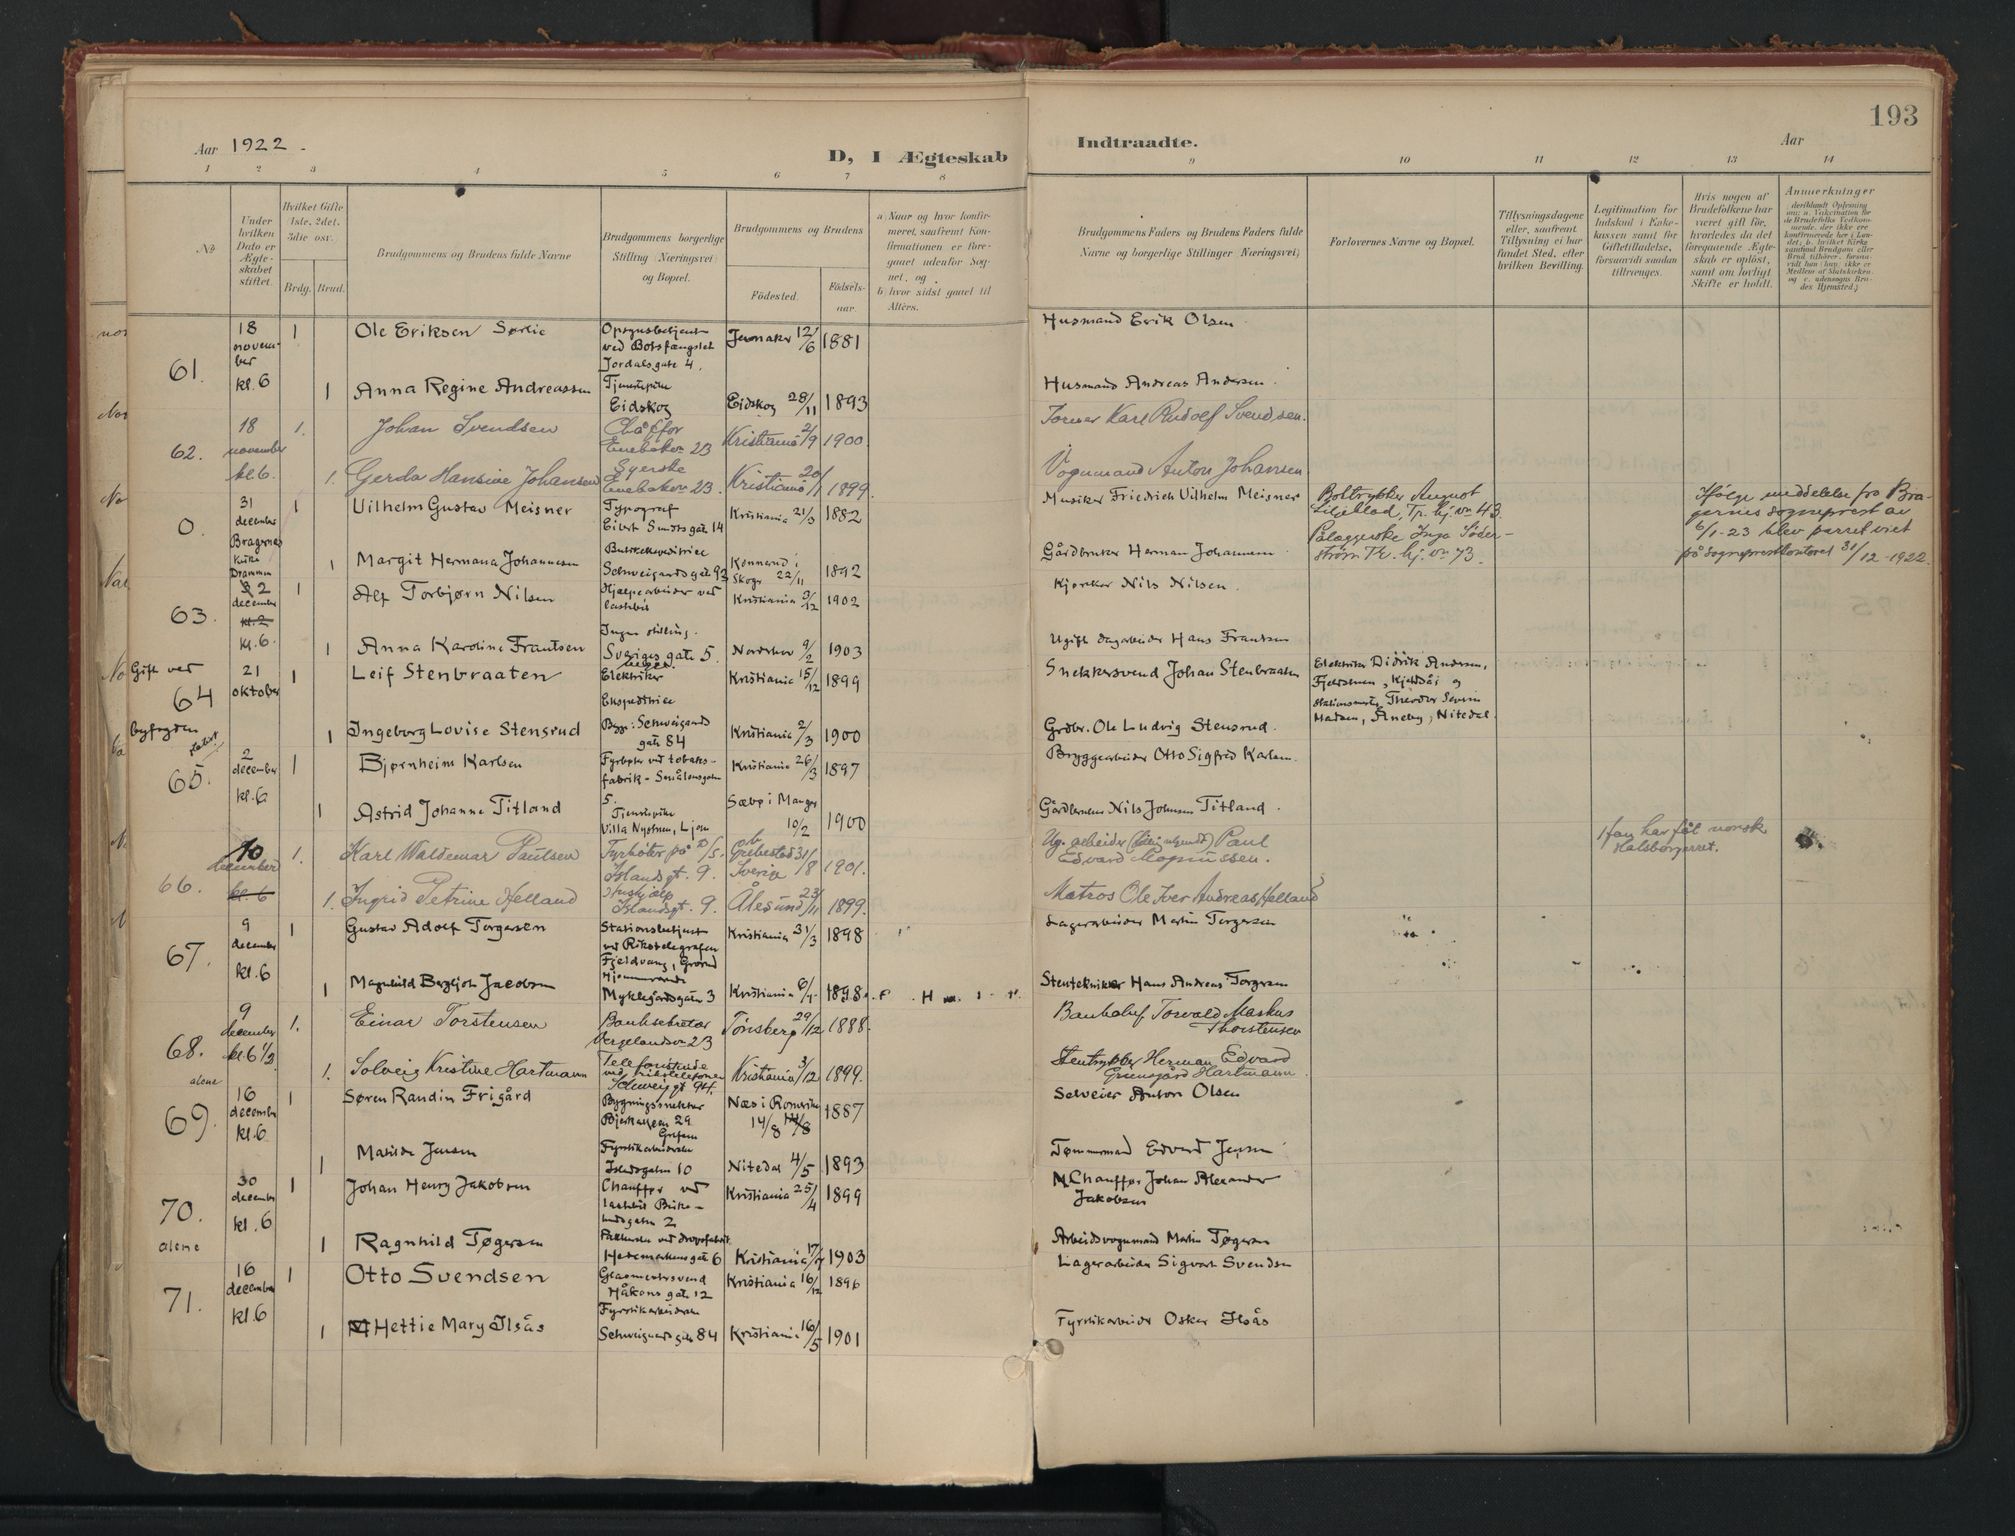 193
Aar 1922.
D, I Ægteskab Indtraadte. Aar
1 2 3 4 5 6 7 8 9 10 11 12 13 14
No
Under hvilken Dato er Ægteskabet stiftet.
Hvilket Gifte 1ste, 2det, 3die osv.
Brdg. Brud.
Brudgommens og Brudens fulde Navne
Brudgommens borgerlige Stilling (Næringsvei) og Bopæl.
Brudgommens og Brudens
Födested. Födselsaar.
a) Naar og hvor konfirmeret, saafremt Konfirmationen er foregaaet udenfor Sognet, og
b) hvor sidst gaaet til Alters.
Brudgommens Faders og Brudens Faders fulde Navne og borgerlige Stillinger (Næringsvei)
Forlovernes Navne og Bopæl.
Tillysningsdagene eller, saafremt Tillysning ei har fundet Sted, efter hvilken Bevilling.
Legitimation for Indskud i Enkekassen samt for Giftetilladelse, forsaavidt saadan tiltrænges.
Hvis nogen af Brudefolkene har været gift för, hvorledes da det foregaaende Ægteskab er oplöst, samt om lovligt Skifte er holdt.
Anmerkninger
61. 18 november kl. 6
1 Ole Eriksen Sørlie
Opsynsbetjent ved Botsfængslet Jordalsgate 4.
Jevnaker 12/6 1881
Husmand Erik Olsen
1 Anna Regine Andreassen
Tjenestepike Eidskog
Eidskog 28/11 1893
Husmand Andreas Andersen.
62. 18 november kl. 6.
1. Johan Svendsen
Enebakvn 23
Kristiania 2/9 1900.
Former Karl Rudolf Svendsen.
1. Gerda Hansine Johansen
Syerske Enebakvn 23.
Kristiania 20/1 1899.
Vognmand Anton Johansen
0. 31 december Bragernes kirke Drammen
1 Vilhelm Gustav Meisner
Typograf Eilert Sundts gate 14
Kristiania 21/3 1882
Musiker Friedrich Vilhelm Meisner
Boktrykker August Liljeblad, Tr. hj. vn 43.
Ifølge meddelelse fra Bragernes sogneprest av 6/1-23 blev parret viet på sogneprestkontoret 31/12-1922.
1 Margit Hermana Johannesen
Schweigaards gate 92
Konnerud i Skoger 22/11 1892
Gårdbruker Herman Johannesen
Pålæggerske Inga Söderström Tr. hj. vn 73.
63. 2 december kl. 2 kl. 6.
1 Alf Torbjørn Nilsen
Hjælpearbeider ved lastebil
Kristiania 3/12 1902
Kjørekar Nils Nilsen.
1 Anna Karoline Frantsen
Ingen stilling. Sveriges gate 5.
Norderhov 9/2 1903
Ugift dagarbeider Hans Frantsen
Gift ved byfogden
64 21 oktober
1 Leif Stenbraaten
Elektriker
Kristiania 15/12 1899
Snekkersvend Johan Stenbraaten
Elektriker Didrik Andersen, Fjeldstuen, Kjelsås og Stationsmester Theodor Severin Madsen, Aneby, Nitedal.
1 Ingeborg Lovise Stensrud
Ekspeditrice Begge: Schweigaards gate 84
Kristiania 2/3 1900
Grdbr. Ole Ludvig Stensrud.
65. 2 december kl. 6
1 Bjørnheim Karlsen
Fyrbøter ved tobaksfabrik - Smålensgaten 5.
Kristiania 26/3 1897
Bryggearbeider Otto Sigfred Karlsen.
1 Astrid Johanne Titland
Tjenestepike Villa Nystuen, Ljan
Sæbø i Manger 10/2 1900
Gårdbruker Nils Johnsen Titland.
66. 10 december kl. 6
1. Karl Waldemar Paulsen
Fyrbøter på D/S. Islandsgt. 9.
Grebestad Sverige 31/8 1901.
Ug. arbeider Paul Edvard Magnussen.
Han har fåt norsk statsborgerret.
1. Ingrid Petrine Helland
Hushjelp Islandsgt. 9.
Ålesund 23/11 1899.
Matros Ole Iver Andreas Helland
67. 9 december kl. 6
1 Gustav Adolf Torgersen
Stationsbetjent ved Rikstelegrafen Fjeldvang, Grorud
Kristiania 31/3 1898
Lagerarbeider Martin Torgersen
1 Magnhild Bergljot Jacobsen
Hjemmeværende Myklegårdsgaten 3
Kristiania 6/1 1898.
Stentekniker Hans Andreas
68. 9 december kl. 6 1/2
alene
1. Einar Torstensen
Banksekretær Vergelandsvn 23
Tønsberg 29/12 1888.
Torvald Markus Thorstensen
1. Solveig Kristine Hartmann
Telefonistinde ved rikstelefonen Schweigt 94.
Kristiania 3/12 1899.
Stentrykker Herman Edvard Hartmann.
69. 16 december kl. 6
1 Søren Randin Frigård
Bygningssnekker Bjerkealleen 29 Grefsen
Næs i Romerike 14/8 1887
Selveier Anton Olsen
1 Matilde Jensen
Fyrstikarbeiderske Islandsgaten 10
Nitedal 4/5 1893
Tømmermand Edvard Jensen
70. 30 december kl. 6
alene
1 Johan Henry Jakobsen
Chauffør ved lastebil
Kristiania 25/4 1899
Chauffør Johan Alexander Jakobsen
1 Ragnhild Tøgersen
Pakkerske ved dropsfabrik Hedemarkens gate 6
Kristiania 17/7 1903
Arbeidsvognmand Martin Tøgersen
71. 16 december kl. 6
1 Otto Svendsen
Glasmestersvend Håkons gate 12
Kristiania 16/12 1896
Lagerarbeider Sigvart Svendsen
1 Hettie Mary Ilsås
Fyrstikarbeiderske Schweigaards gate 84
Kristiania 16/5 1901
Fyrstikarbeider Oskar Ilsås